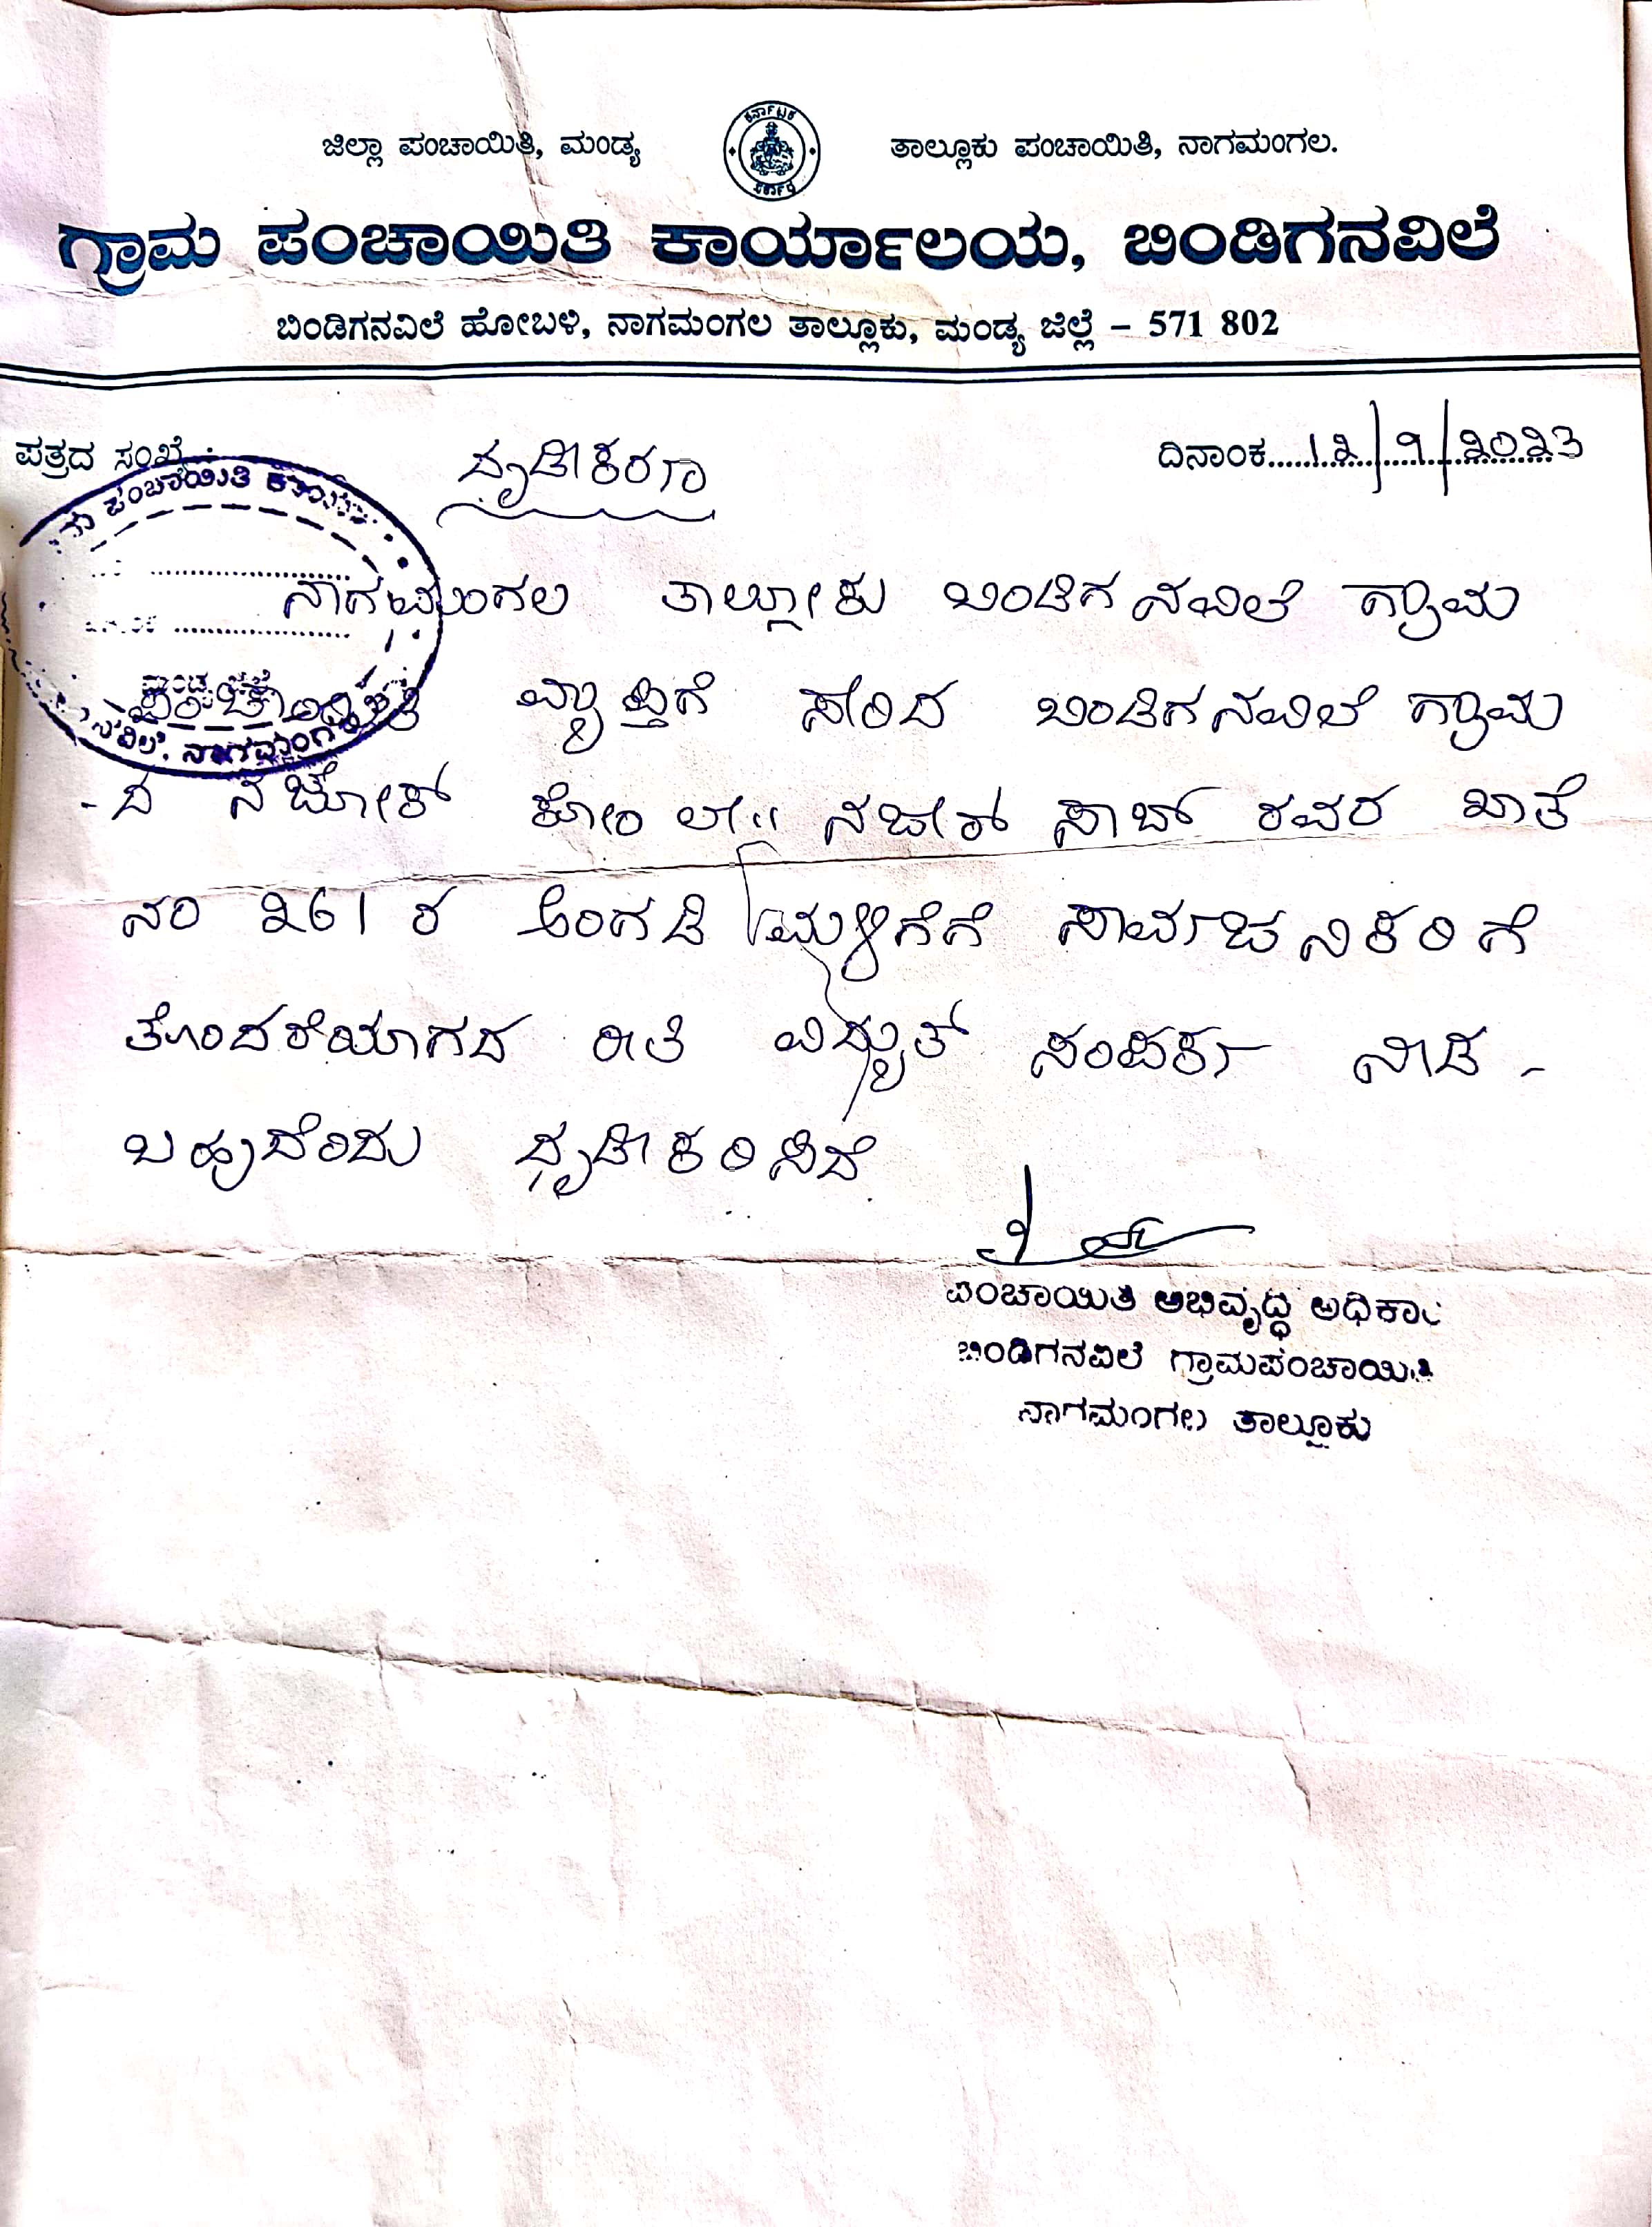 ಜಿಲ್ಲಾ ಪಂಚಾಯಿತಿ, ಮಂಡ್ಯ
ಕರ್ನಾಟಕ ಸರ್ಕಾರ
ತಾಲ್ಲೂಕು ಪಂಚಾಯಿತಿ, ನಾಗಮಂಗಲ.
ಗ್ರಾಮ ಪಂಚಾಯಿತಿ ಕಾರ್ಯಾಲಯ, ಬಿಂಡಿಗನವಿಲೆ
ಬಿಂಡಿಗನವಿಲೆ ಹೋಬಳಿ, ನಾಗಮಂಗಲ ತಾಲ್ಲೂಕು, ಮಂಡ್ಯ ಜಿಲ್ಲೆ – 571 802
ಪತ್ರದ ಸಂಖ್ಯೆ :
ದಿನಾಂಕ 12/9/2023
ದೃಡೀಕರಣ
ನಾಗಮಂಗಲ ತಾಲ್ಲೋಕು ಬಿಂಡಿಗನವಿಲೆ ಗ್ರಾಮ
ಪಂಚಾಯ್ತಿ ವ್ಯಾಪ್ತಿಗೆ ಸೇರಿದ ಬಿಂಡಿಗನವಿಲೆ ಗ್ರಾಮ
- ದ ನಜೀರ್ ಸಾಬ್ ರವರ ಖಾತೆ
ನಂ 261 ರ ಅಂಗಡಿ ಮಳಿಗೆಗೆ ಸಾರ್ವಜನಿಕರಿಗೆ
ತೊಂದರೆಯಾಗದ ರೀತಿ ವಿದ್ಯುತ್ ಸಂಪರ್ಕ ನೀಡ -
ಬಹುದೆಂದು ಧೃಡೀಕರಿಸಿದೆ
ಪಂಚಾಯಿತಿ ಅಭಿವೃದ್ಧಿ ಅಧಿಕಾರಿ
ಬಿಂಡಿಗನವಿಲೆ ಗ್ರಾಮಪಂಚಾಯಿತಿ
ನಾಗಮಂಗಲ ತಾಲ್ಲೂಕು